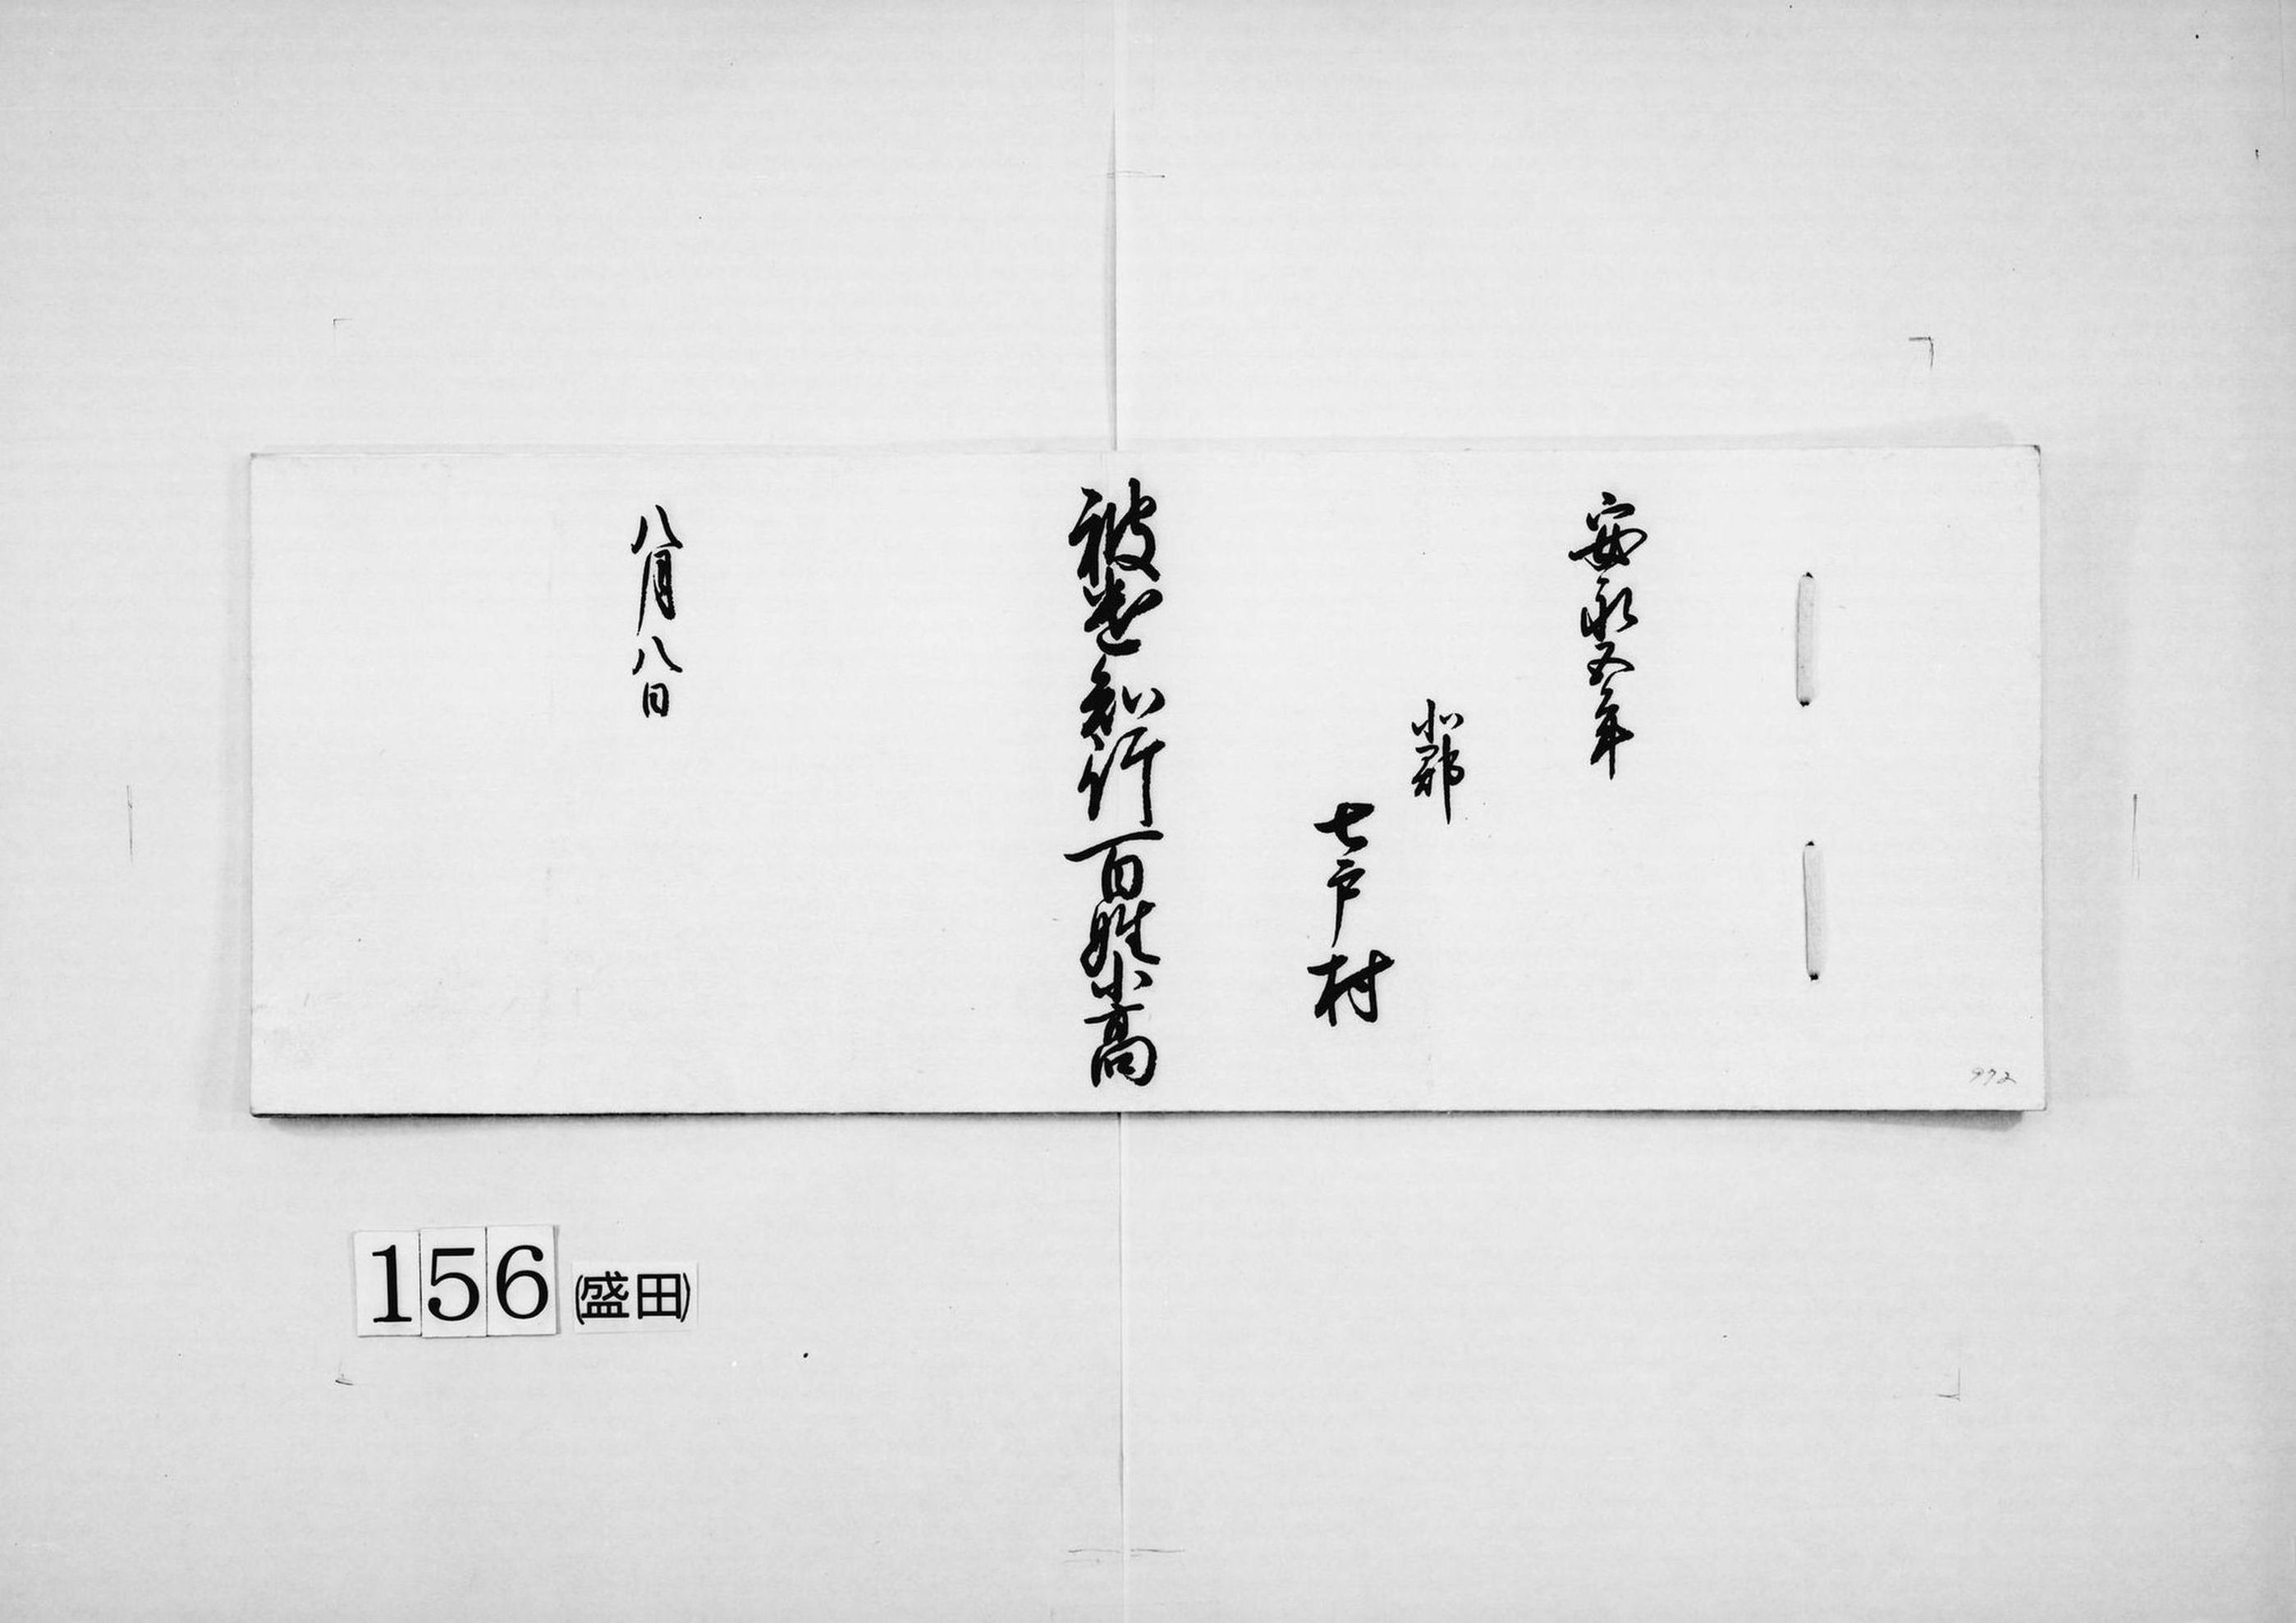 安永五年
北郡
七戸村
被遣知行百姓小高
八月八日
972
156(盛田)